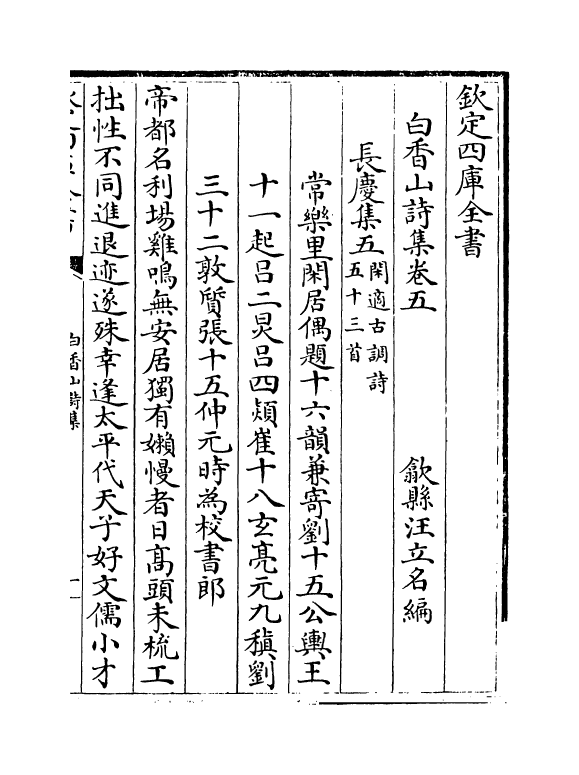 欽定四庫全書
白香山詩集卷五　歙縣汪立名編
長慶集五
閑適古調詩
五十三首
常樂里閑居偶題十六韻兼寄劉十五公輿王
十一起呂二炅呂四熲崔十八玄亮元九稹劉
三十二敦質張十五仲元時為校書郎
帝都名利場雞鳴無安居獨有嬾慢者日髙頭未梳工
拙性不同進退迹遂殊幸逢太平代天子好文儒小才
白香山詩集
一